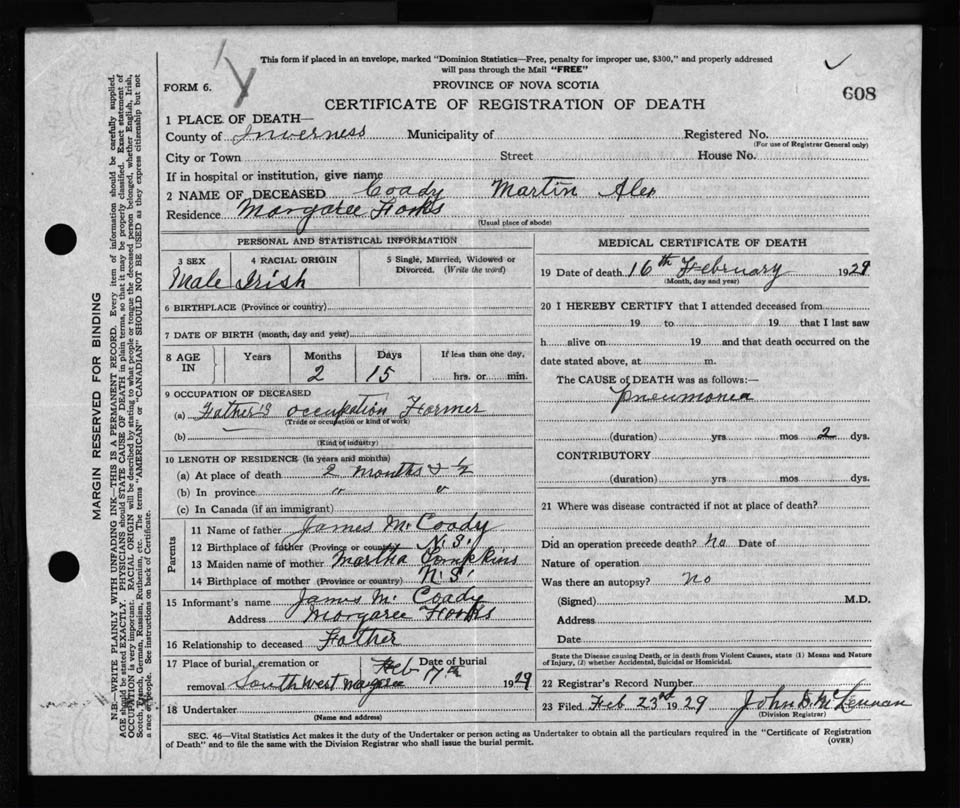 This form if placed in an envelope, marked "Dominion Statistics—Free, penalty for improper use, $300," and properly addressed
will pass through the Mail "FREE"
FORM 6.
PROVINCE OF NOVA SCOTIA
608
CERTIFICATE OF REGISTRATION OF DEATH
1 PLACE OF DEATH—
County of Inverness Municipality of Registered No.
(For use of Registrar General only)
City or Town Street House No.
If in hospital or institution, give name
2 NAME OF DECEASED Coady Martin Alex
Residence Margaree Forks
(Usual place of abode)
PERSONAL AND STATISTICAL INFORMATION
3 SEX 4 RACIAL ORIGIN 5 Single, Married, Widowed or
Divorced. (Write the word)
Male Irish
6 BIRTHPLACE (Province or country)
7 DATE OF BIRTH (month, day and year)
8 AGE Years Months Days If less than one day,
IN 2 15 hrs. or min.
9 OCCUPATION OF DECEASED
(a) Father's occupation Farmer
(Trade or occupation or kind of work)
(b)
(Kind of industry)
10 LENGTH OF RESIDENCE (in years and months)
(a) At place of death 2 months & ½
(b) In province " "
(c) In Canada (if an immigrant)
Parents
11 Name of father James M. Coady
12 Birthplace of father (Province or country) N.S.
13 Maiden name of mother Martha Tompkins
14 Birthplace of mother (Province or country) N.S.
15 Informant's name James M. Coady
Address Margaree Forks
16 Relationship to deceased Father
17 Place of burial, cremation or Date of burial
Feb 17th
removal South West Margaree 1929
18 Undertaker
(Name and address)
MEDICAL CERTIFICATE OF DEATH
19 Date of death 16th February 1929
(Month, day and year)
20 I HEREBY CERTIFY that I attended deceased from
19 to 19 that I last saw
h alive on 19 and that death occurred on the
date stated above, at m.
The CAUSE of DEATH was as follows:—
Pneumonia
(duration) yrs mos 2 dys.
CONTRIBUTORY
(duration) yrs. mos dys.
21 Where was disease contracted if not at place of death?
Did an operation precede death? No Date of
Nature of operation
Was there an autopsy? No
(Signed) M.D.
Address
Date
State the Disease causing Death, or in death from Violent Causes, state (1) Means and Nature
of Injury, (2) whether Accidental, Suicidal or Homicidal.
22 Registrar's Record Number
23 Filed Feb 23rd 1929 John D. McLennan
(Division Registrar)
SEC. 46—Vital Statistics Act makes it the duty of the Undertaker or person acting as Undertaker to obtain all the particulars required in the "Certificate of Registration
of Death" and to file the same with the Division Registrar who shall issue the burial permit.
(OVER)
MARGIN RESERVED FOR BINDING
N.B.—WRITE PLAINLY WITH UNFADING INK—THIS IS A PERMANENT RECORD. Every item of information should be carefully supplied.
AGE should be stated EXACTLY. PHYSICIANS should STATE CAUSE OF DEATH in plain terms, so that it may be properly classified. Exact statement of
OCCUPATION is very important. RACIAL ORIGIN will be described by stating to what people or tongue the deceased person belonged, whether English, Irish,
Scotch, French, German, Russian, Ruthenian, etc. The terms "AMERICAN" or "CANADIAN" SHOULD NOT BE USED as they express citizenship but not
a race or people. See instructions on back of Certificate.